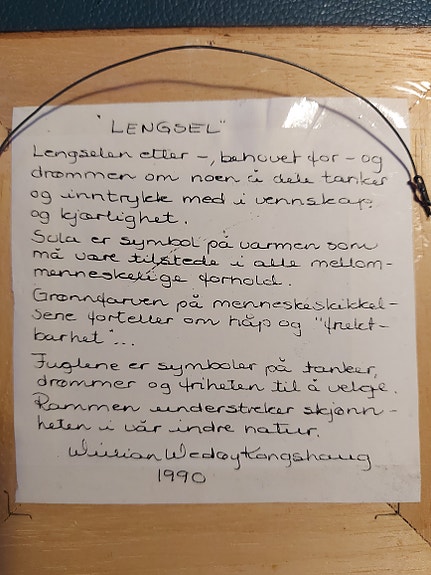 "LENGSEL"
Lengselen etter -, behovet for - og
drømmen om noen å dele tanker
og inntrykk med i vennskap
og kjærlighet.
Sola er symbol på varmen som
må være tilstede i alle mellom-
menneskelige forhold.
Grønnfarven på menneskeskikkel-
sene forteller om håp og "frukt-
barhet"...
Fuglene er symboler på tanker,
drømmer og friheten til å velge.
Rammen understreker skjønn-
heten i vår indre natur.
Wedøy Kongshaug
1990